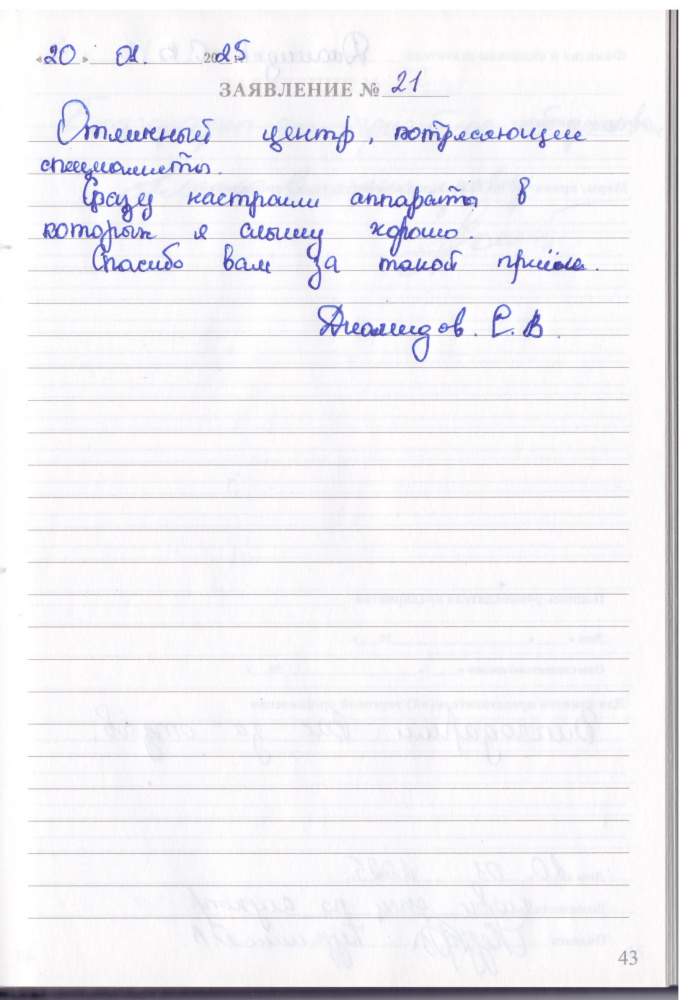 «20» 01. 2025 г.
ЗАЯВЛЕНИЕ № 21
Отличный центр, потрясающие
специалисты.
Сразу настроили аппараты в
которых я слышу хорошо.
Спасибо вам за такой приём.
Диамидов. С. В.
43